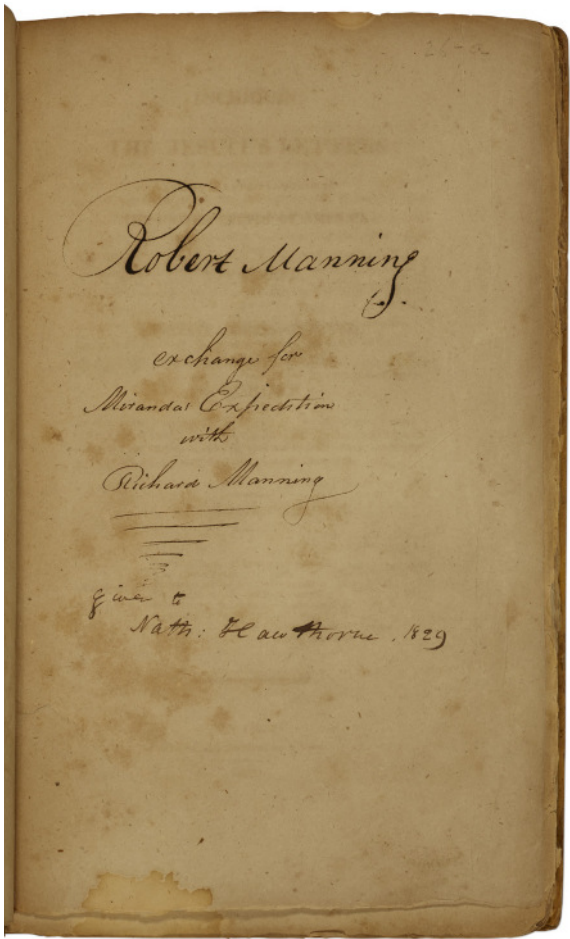 Robert Manning
exchange for
Miranda's Expedition
with
Richard Manning
given to
Nath: Hawthorne. 1829